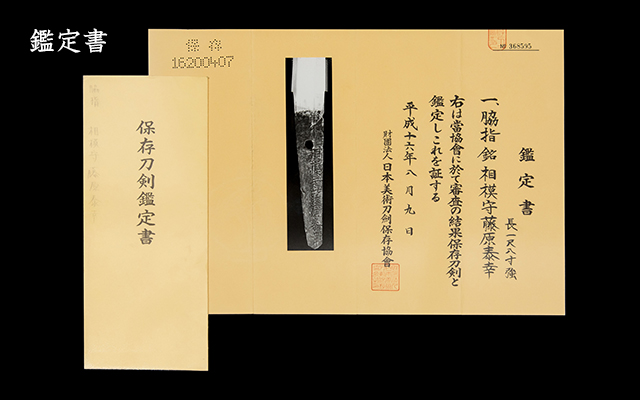 鑑定書
保存
16200407
№ 368595
鑑定書
一、脇指 銘 相模守藤原泰幸
長一尺八寸強
右は當協會に於て審査の結果保存刀剣と
鑑定しこれを証する
平成十六年八月九日
財團法人 日本美術刀剣保存協會
保存刀剣鑑定書